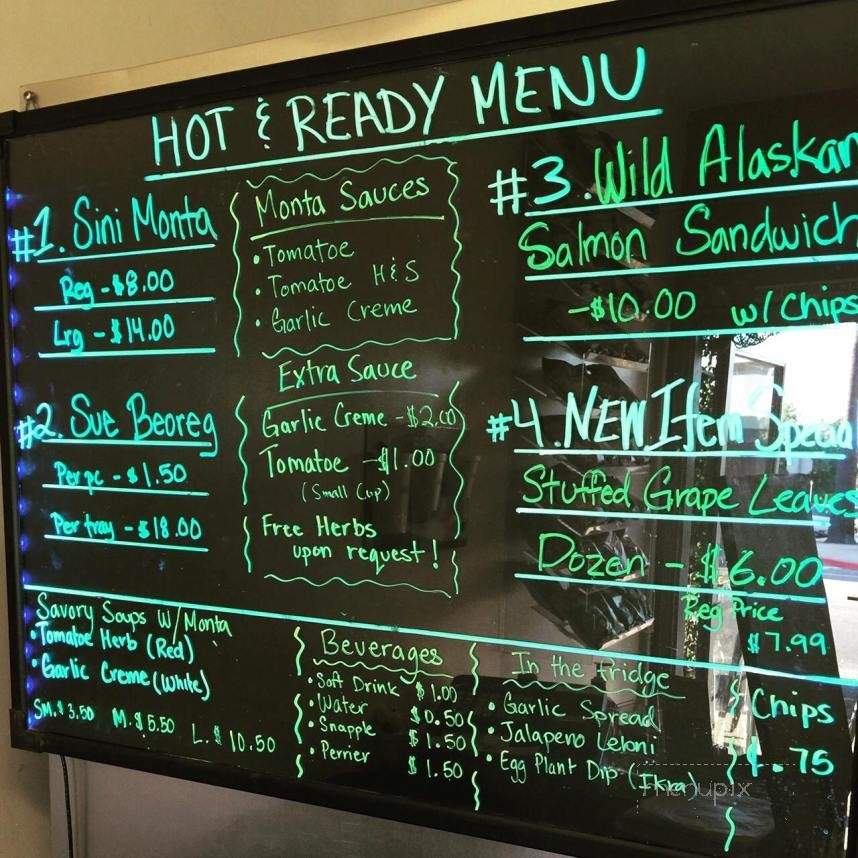 HOT & READY MENU
#1. Sini Monta
Reg - $8.00
Lrg - $14.00
#2. Sue Beoreg
Per pc - $1.50
Per tray - $18.00
Monta Sauces
• Tomatoe
• Tomatoe H&S
• Garlic Creme
Extra Sauce
Garlic Creme - $2.00
Tomatoe - $1.00
(Small Cup)
Free Herbs
upon request!
#3. Wild Alaskan
Salmon Sandwich
- $10.00 w/ Chips
#4. NEW Item Special
Stuffed Grape Leaves
Dozen - $6.00
Reg Price
$7.99
Savory Soups W/Monta
• Tomatoe Herb (Red)
• Garlic Creme (White)
Sm. $3.50 M. $5.50 L. $10.50
Beverages
• Soft Drink $1.00
• Water $0.50
• Snapple $1.50
• Perrier $1.50
In the fridge
• Garlic Spread
• Jalapeno Leloni
• Egg Plant Dip (Ikra)
Chips
$.75
menupix